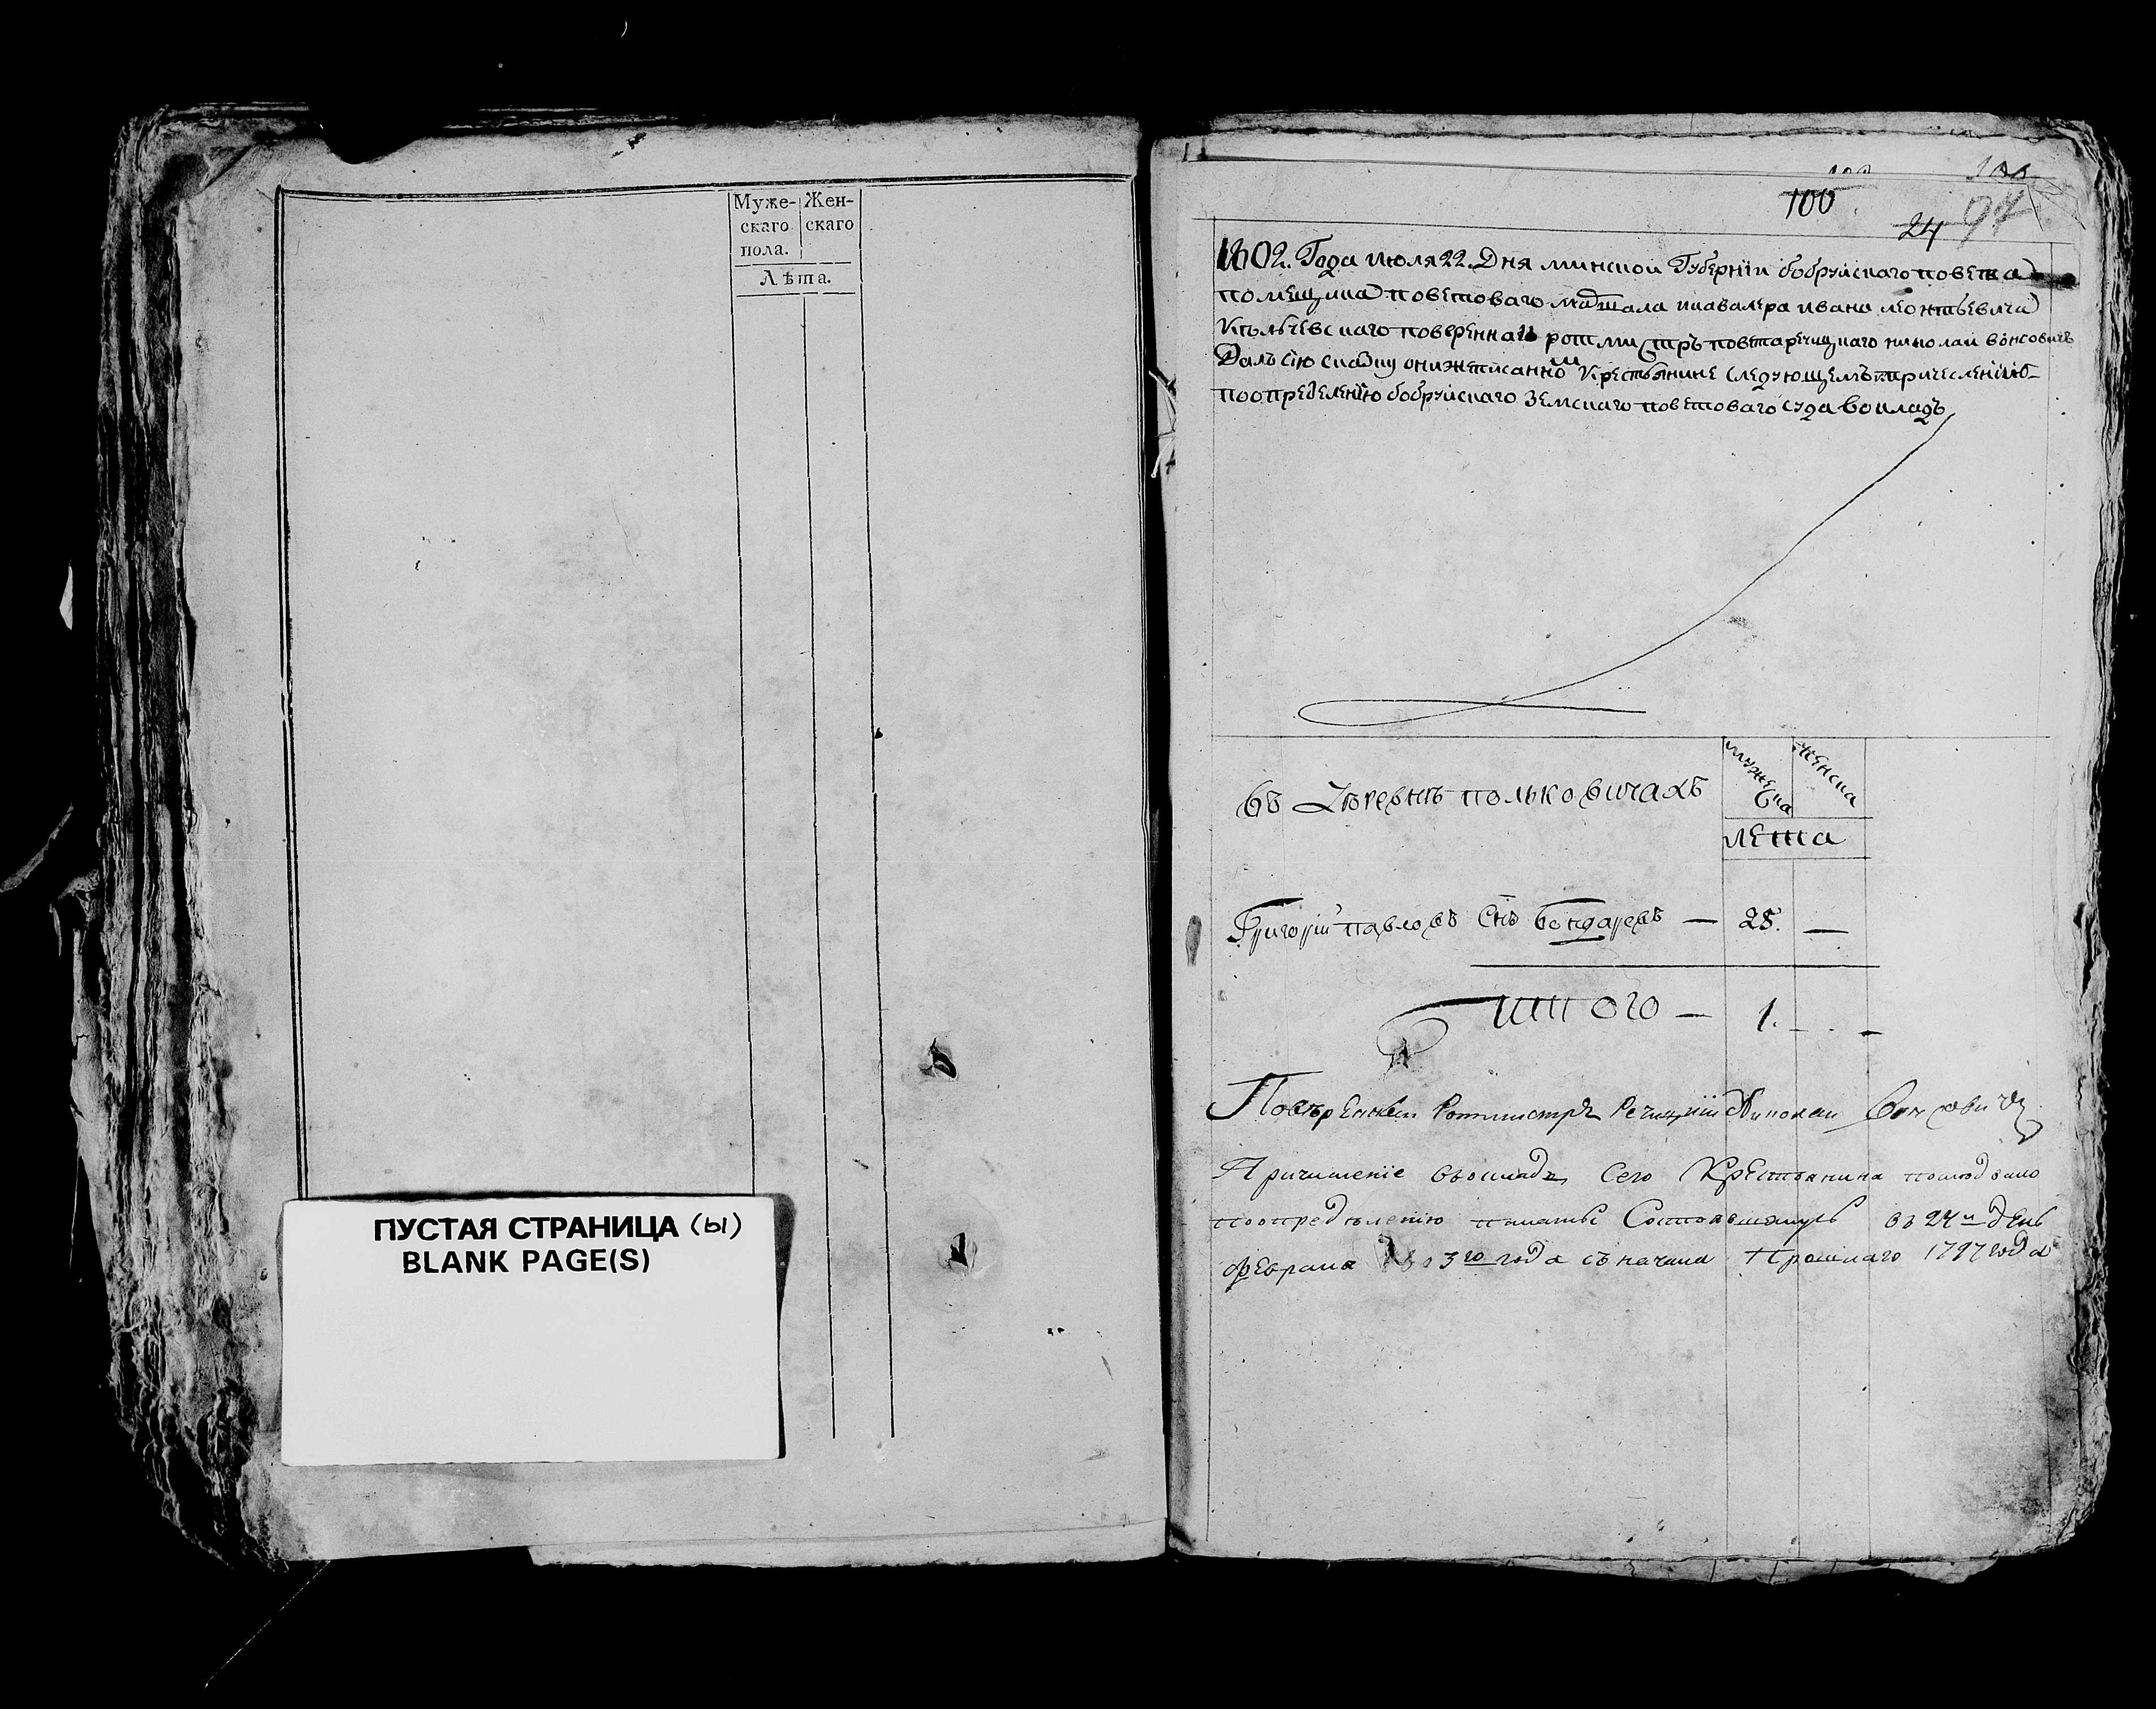 Муже-
скаго
пола.
Жен-
скаго
Лѣта.
ПУСТАЯ СТРАНИЦА (ы)
BLANK PAGE(S)
100
24 97
1802. Года июля 22. Дня минской Губерніи бобруйскаго повета
помещика поветоваго маршала икавалера ивана леонтьевича
поверенный ротмистръ повета речицкаго николай вонсовичъ
Далъ сію сказку онижеписанномъ крестьянине следующемъ причислению
поопределению бобруйскаго земскаго поветоваго суда вокладъ
въ Деревнѣ польковичахъ
мужеска
женска
лета
Григорій павловъ Снъ бондаревъ — 28. —
итого — 1. —
Повѣренный Ротмистръ Речицкій Николай Вонсовичъ
Причисление въокладъ сего Крестьянина
поопределению палаты Состоявшемусь въ 24 й день
февраля 1803 го года съ начала Прошлаго 1797 года